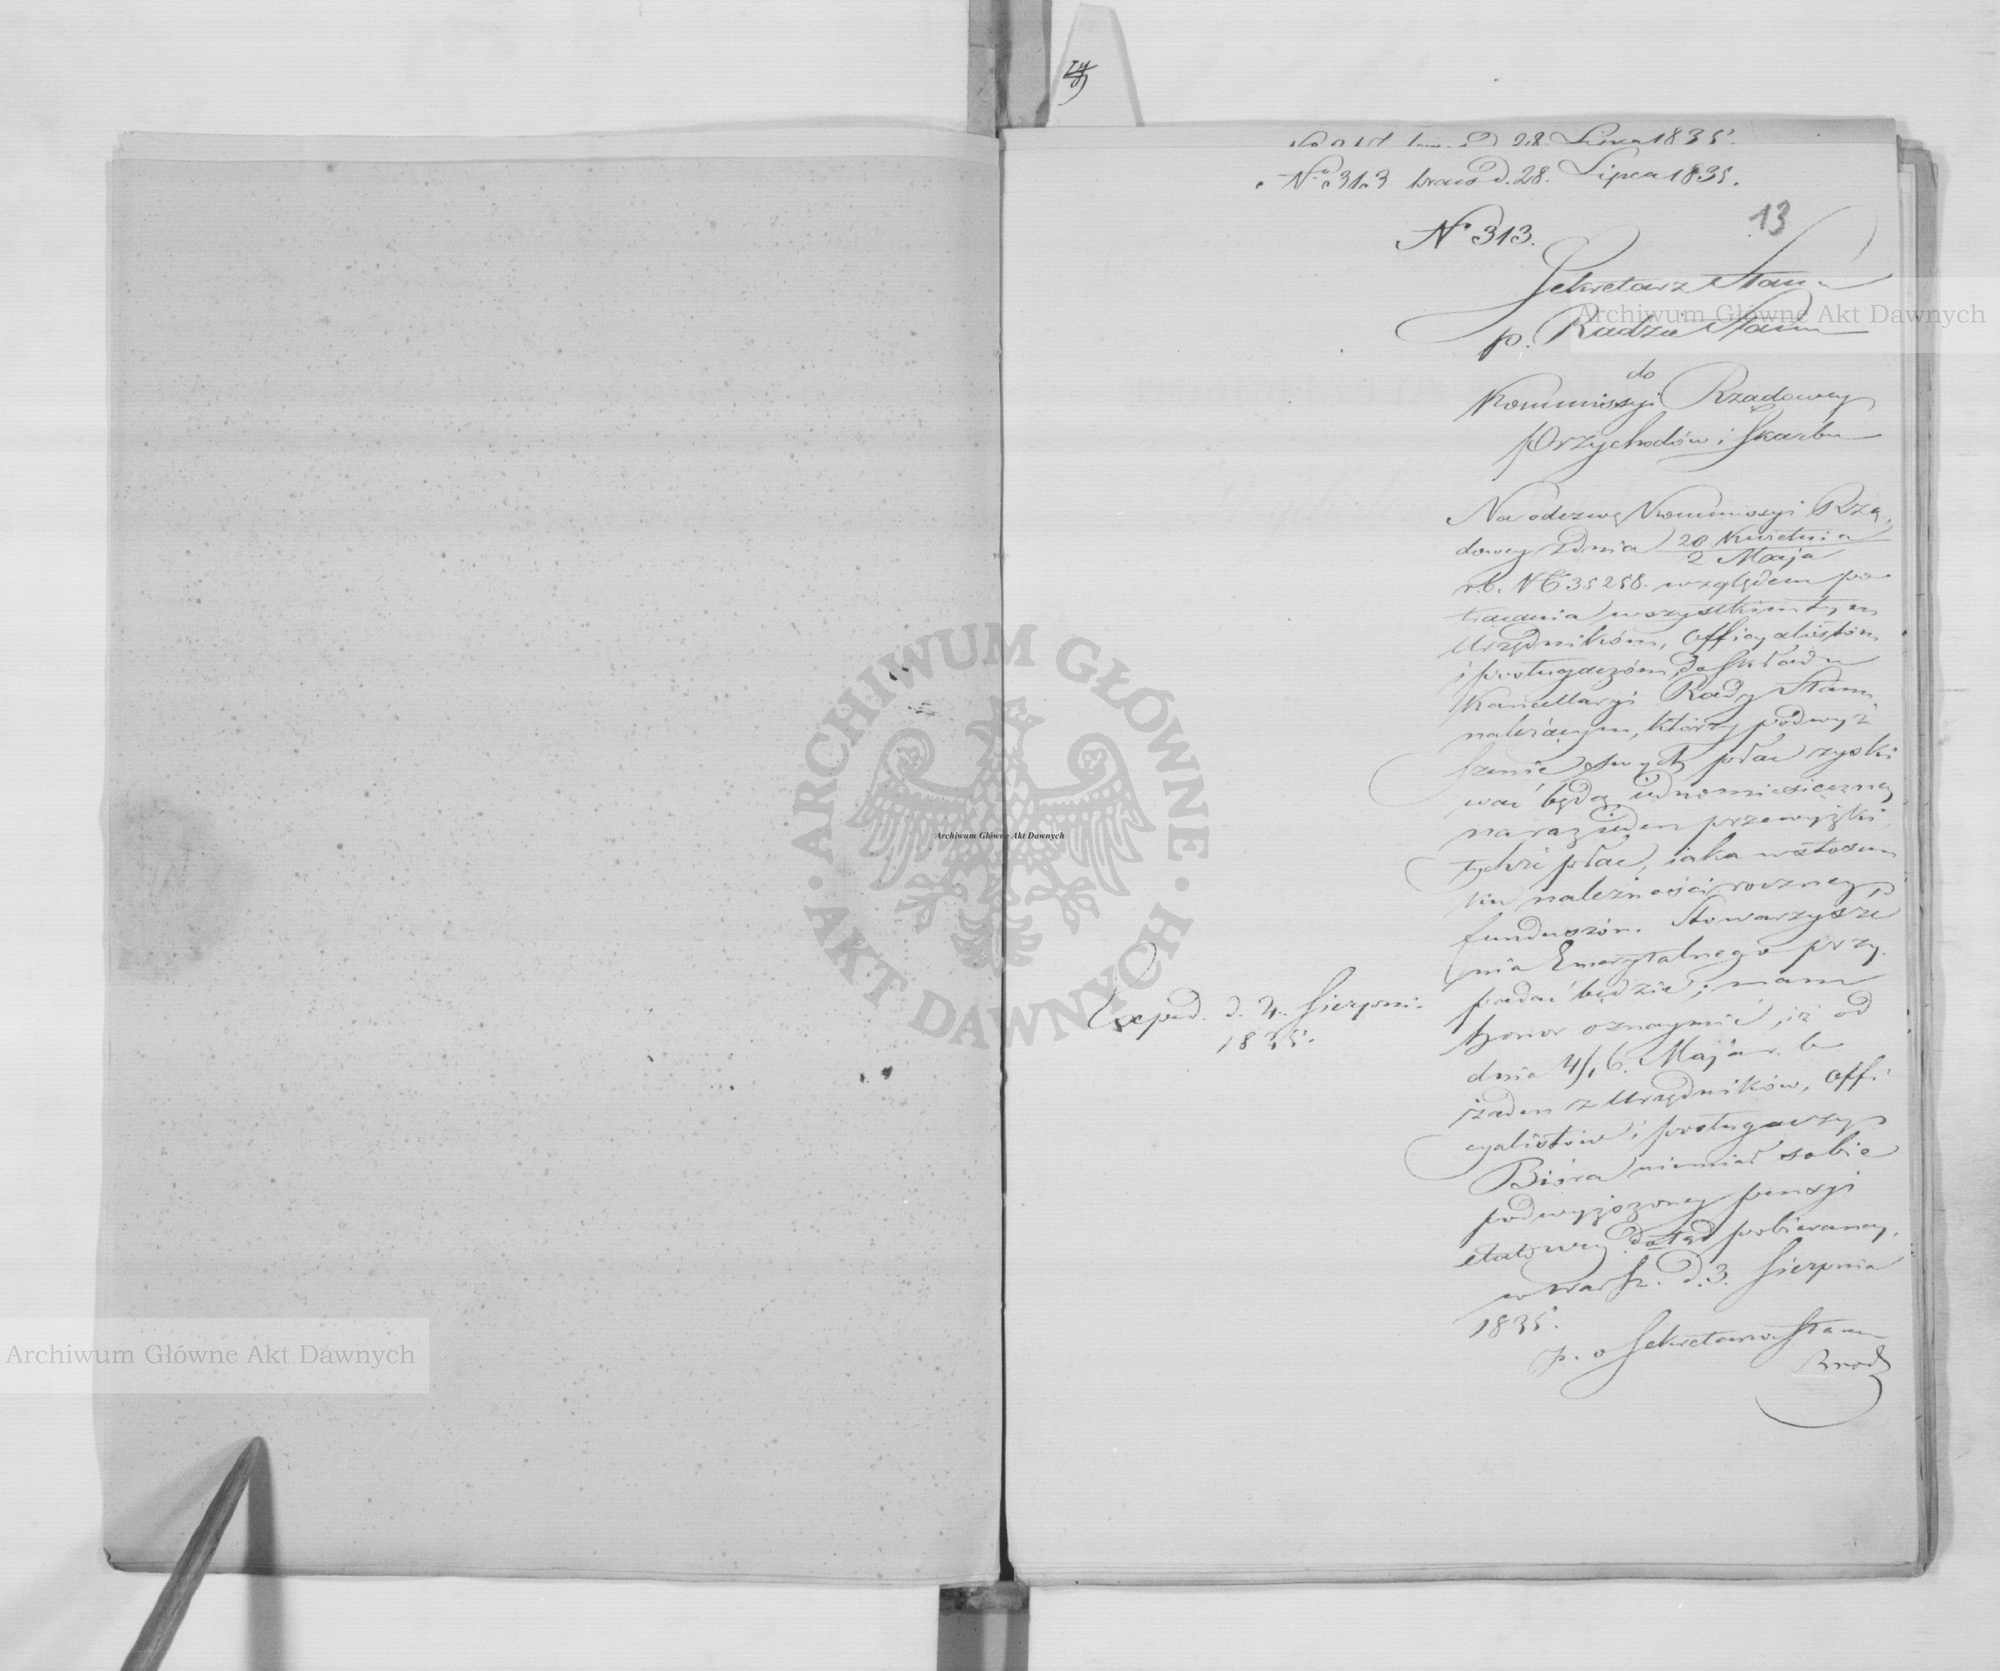 No 313 brac d. 28. Lipca 1835.
13
No 313.
Sekretarz Stanu
p. Radzie Stanu
do
Kommissyi Rządowey
Przychodów i Skarbu
Na odezwę Kommissyi Rzą-
dowey z dnia 20 Kwietnia
2 Maja
r. b. No 35258. względem po-
trącania wszystkim tym
Urzędnikom, Officyalistom
i posługaczom, do składu
Kancellaryi Rady Stanu
należącym, którzy podwyż-
szenie swych płac zyski-
wać będą, iednomiesięczney
na raz ieden przewyżki
tychże płac, iaka w stosun-
ku należności roczney,
funduszów. Stowarzysze-
nia Emerytalnego przy-
padać będzie; mam
honor oznaymić, iż od
dnia 4/16. Maja r. b.
żaden z Urzędników, Offi-
cyalistów i posługaczy
Bióra niemiał sobie
podwyższoney pensyi
etatowey dotąd pobieraney.
w Warsz. d. 3. Sierpnia
1835.
p. o Sekretarza Stanu
Exped. d. 4. Sierpni.
1835.
Archiwum Główne Akt Dawnych
Archiwum Główne Akt Dawnych
Archiwum Główne Akt Dawnych
ARCHIWUM GŁÓWNE
AKT DAWNYCH